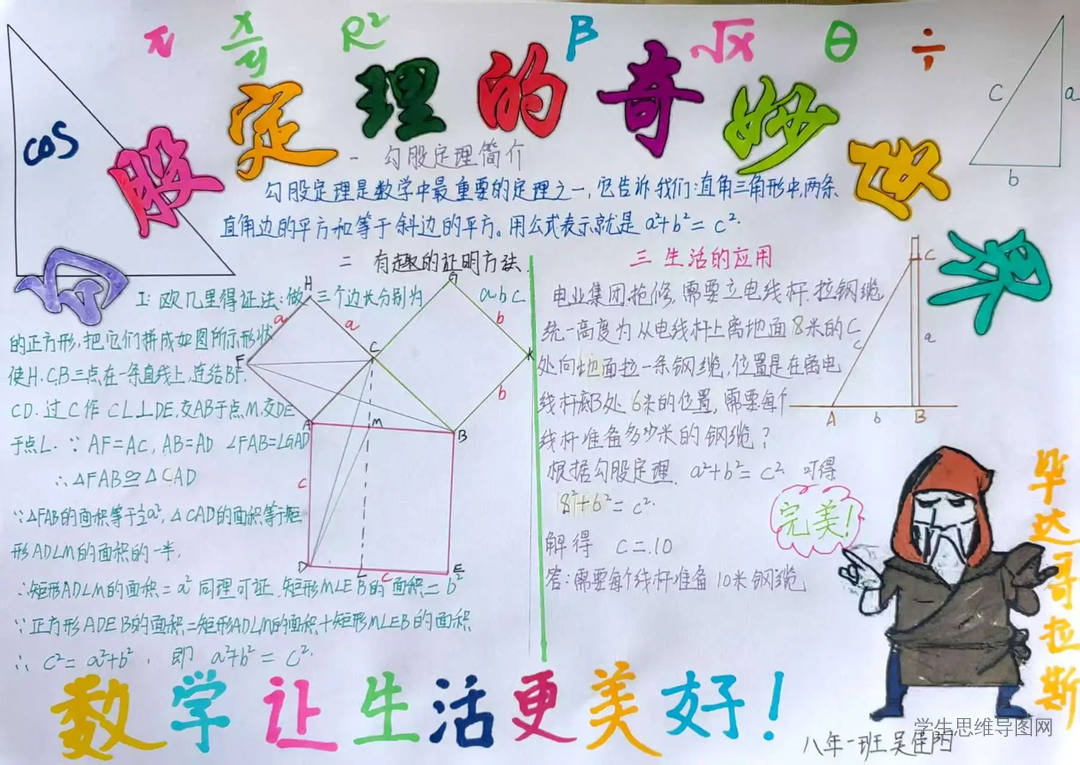 π x/y R² β √x θ ÷
勾股定理的奇妙世界
cos
c a
b
一 勾股定理简介
勾股定理是数学中最重要的定理之一,它告诉我们:直角三角形中,两条
直角边的平方和等于斜边的平方。用公式表示就是 a²+b²=c².
二 有趣的证明方法.
1: 欧几里得证法:做三个边长分别为 a b c
的正方形,把它们拼成如图所示形状
使H.C.B三点在一条直线上,连结BF.
CD. 过C作 CL⊥DE,交AB于点M,交DE
于点L. ∵ AF=AC, AB=AD ∠FAB=∠GAD
∴△FAB≌△CAD
∵△FAB的面积等于½a²,△CAD的面积等于矩
形ADLM的面积的一半.
∴矩形ADLM的面积=a² 同理可证,矩形MLEB的面积=b²
∵正方形ADEB的面积=矩形ADLM的面积+矩形MLEB的面积
∴ c²=a²+b², 即 a²+b²=c².
H
a a b
F C K
b
A M B
c
D L c E
三 生活的应用
电业集团抢修,需要立电线杆.拉钢缆
统一高度为从电线杆上离地面8米的C
处向地面拉一条钢缆,位置是在离电
线杆底B处6米的位置,需要每个
线杆准备多少米的钢缆?
根据勾股定理. a²+b²=c² 可得
8²+6²=c².
解得 c=10
答:需要每个线杆准备10米钢缆
C
c a
A b B
完美!
毕达哥拉斯
数学让生活更美好!
八年一班 吴佳阳
学生思维导图网